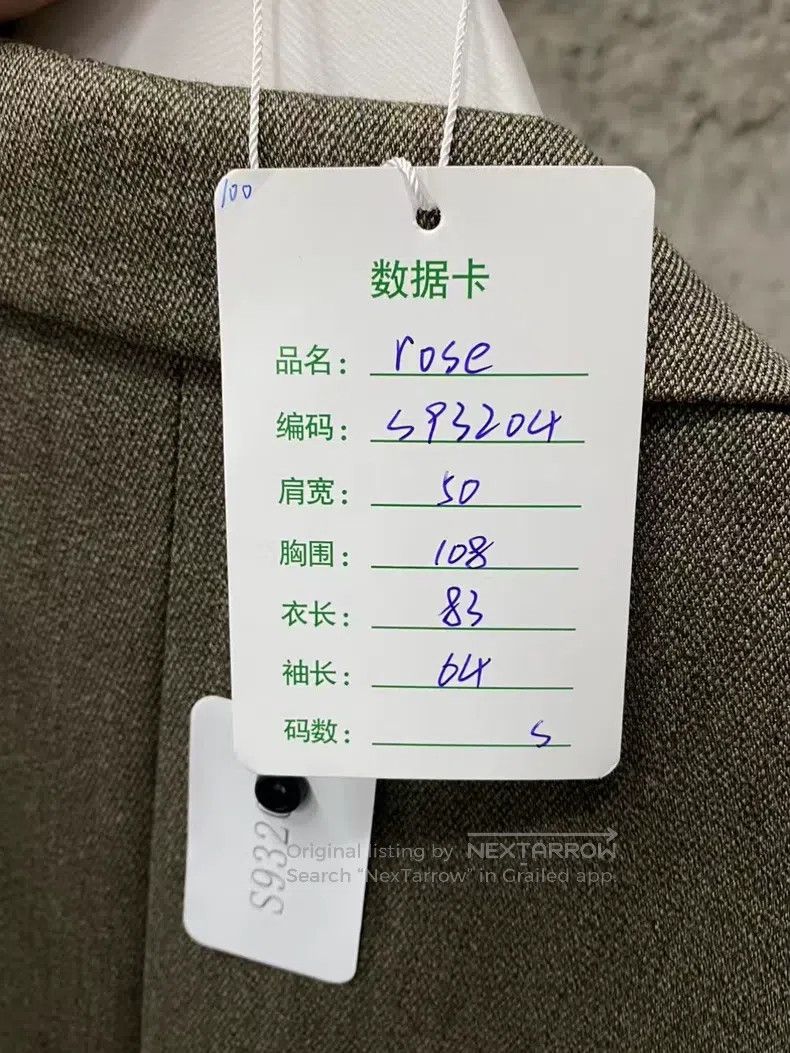 100
数据卡
品名： rose
编码： S93204
肩宽： 50
胸围： 108
衣长： 83
袖长： 64
码数： S
S932
Original listing by NEXTARROW
Search "NexTarrow" in Grailed app.